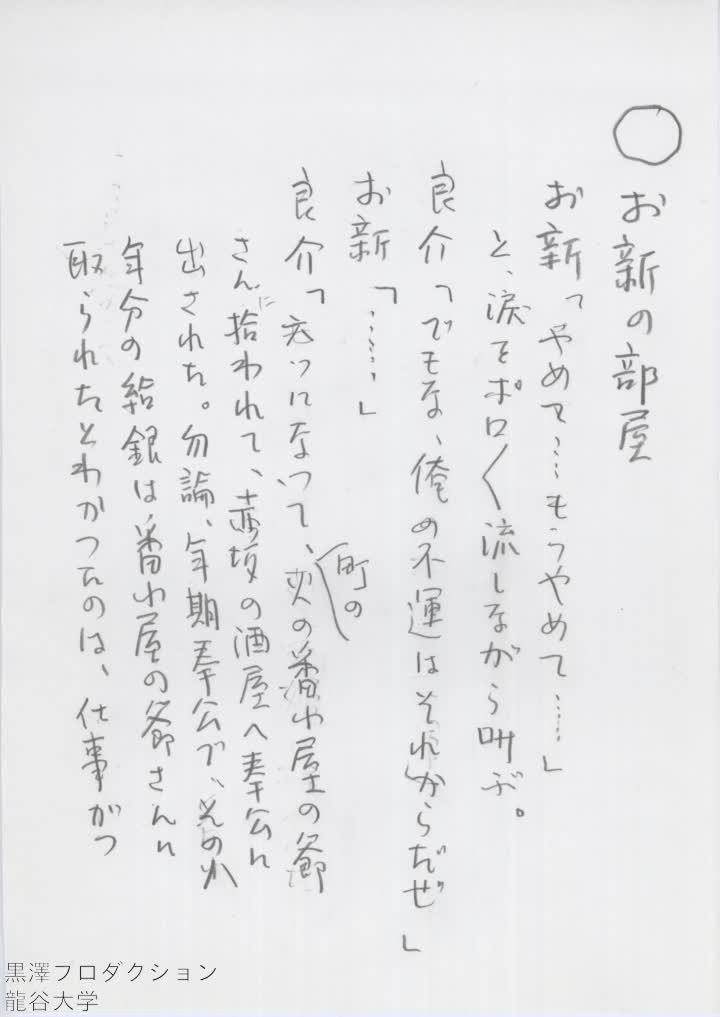 ○ お新の部屋
お新「やめて……もうやめて……」
と、涙をポロ〱流しながら叫ぶ。
良介「でもな、俺の不運はそれからだぜ」
お新「……」
良介「元ツになって、町の番小屋の爺
さんに拾われて、赤坂の酒屋へ奉公に
出された。勿論、年期奉公で、その
年分の給銀は番小屋の爺さんに
取られたとわかつたのは、仕事がつ
黒澤フロダクション
龍谷大学